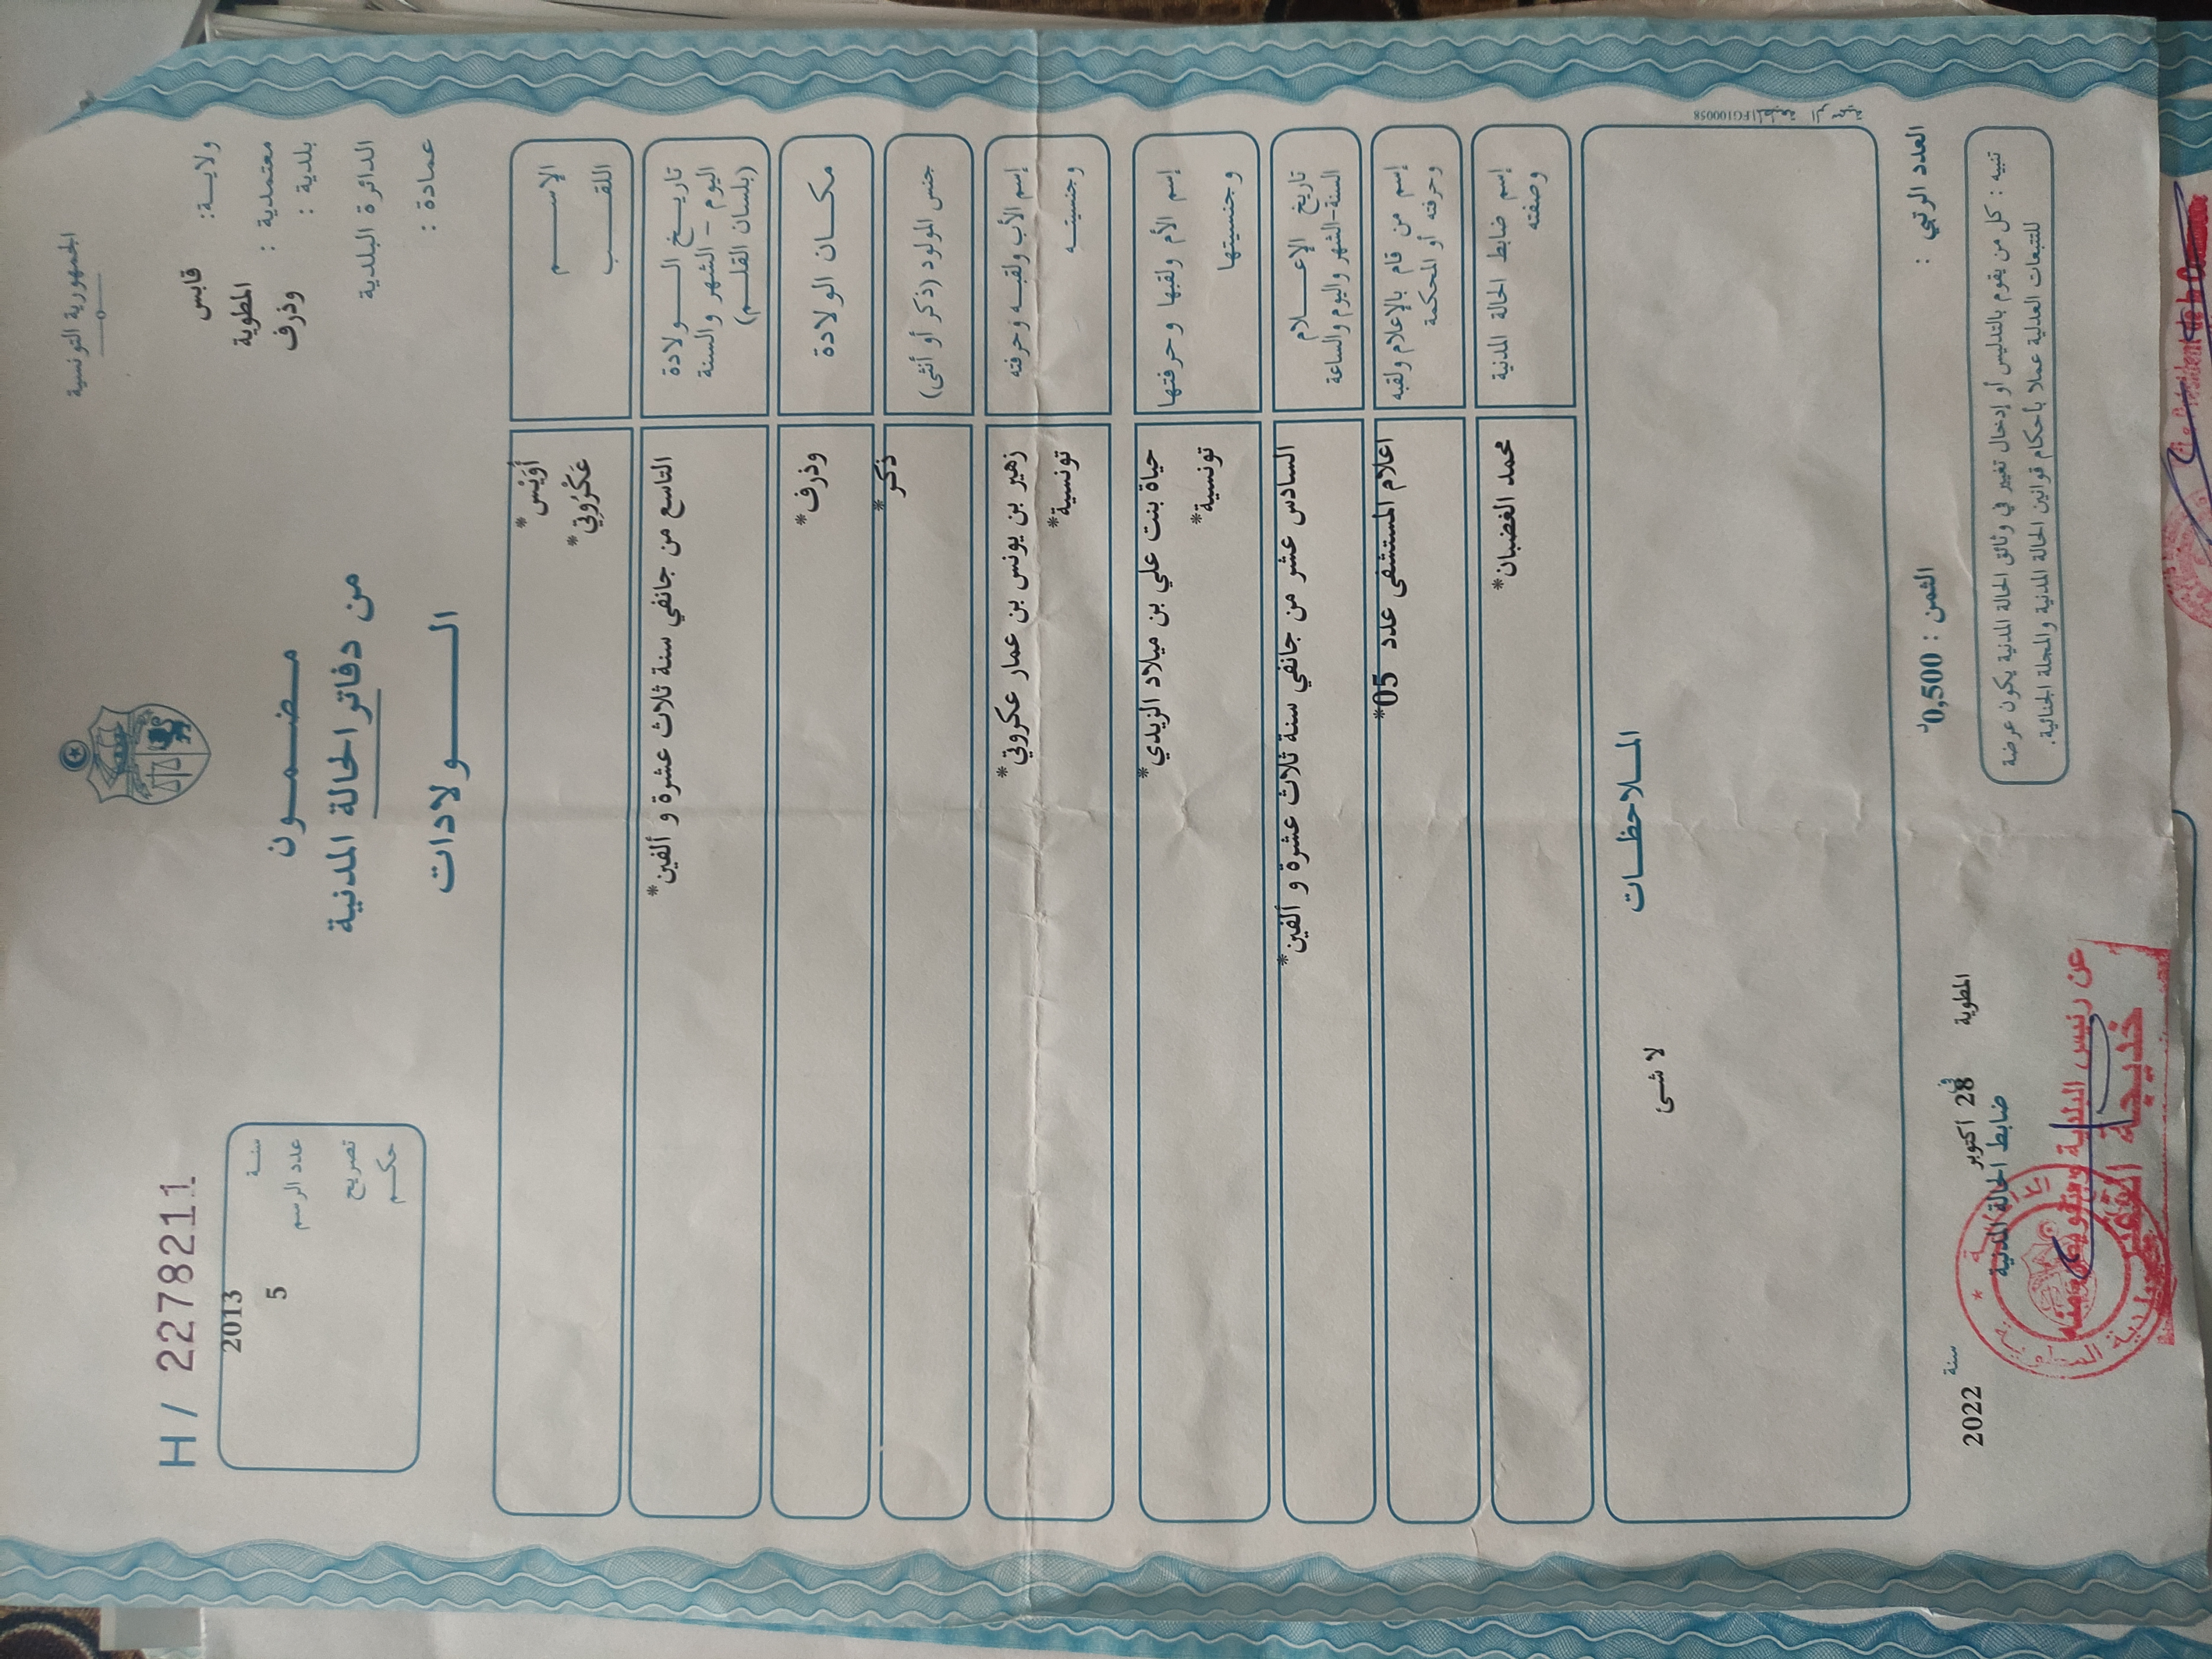 الجمهورية التونسية
H / 2278211
ولايـة: قابس
معتمدية : المطوية
بلدية : وذرف
الدائرة البلدية
عمادة :
مضـمـون
من دفاتر الحالة المدنية
الـــولادات
سنـة 2013
عدد الرسم 5
تصريح
حكـم
الإســـم أُوَيْس*
اللقـب عَكْرُوتِي*
تاريـخ الـولادة
اليوم - الشهر والسنة
(بلسان القلـم)
التاسع من جانفي سنة ثلاث عشرة و ألفين*
مكـان الولادة وذرف*
جنس المولود (ذكر أو أنثى) ذكر*
إسم الأب ولقبـه وحرفته زهير بن يونس بن عمار عكروتي*
وجنسيتـه تونسية*
إسم الأم ولقبها وحرفتها حياة بنت علي بن ميلاد الزيدي*
وجنسيتها تونسية*
تاريخ الإعـلام
السنة-الشهر واليوم والساعة
السادس عشر من جانفي سنة ثلاث عشرة و ألفين*
إسم من قام بالإعلام ولقبه
وحرفته أو المحكمة
اعلام المستشفى عدد 05*
إسم ضابط الحالة المدنية
وصفته
محمد الغضبان*
المـلاحظـات
لا شئ
العدد الرتبي :
الثمن : 0,500د
المطوية في 28 اكتوبر سنة 2022
ضابط الحالة المدنية
تنبيه : كل من يقوم بالتدليس أو إدخال تغيير في وثائق الحالة المدنية يكون عرضة
للتتبعات العدلية عملا بأحكام قوانين الحالة المدنية والمجلة الجنائية.
عن رئيس البلدية وبتفويض منه
خديجة